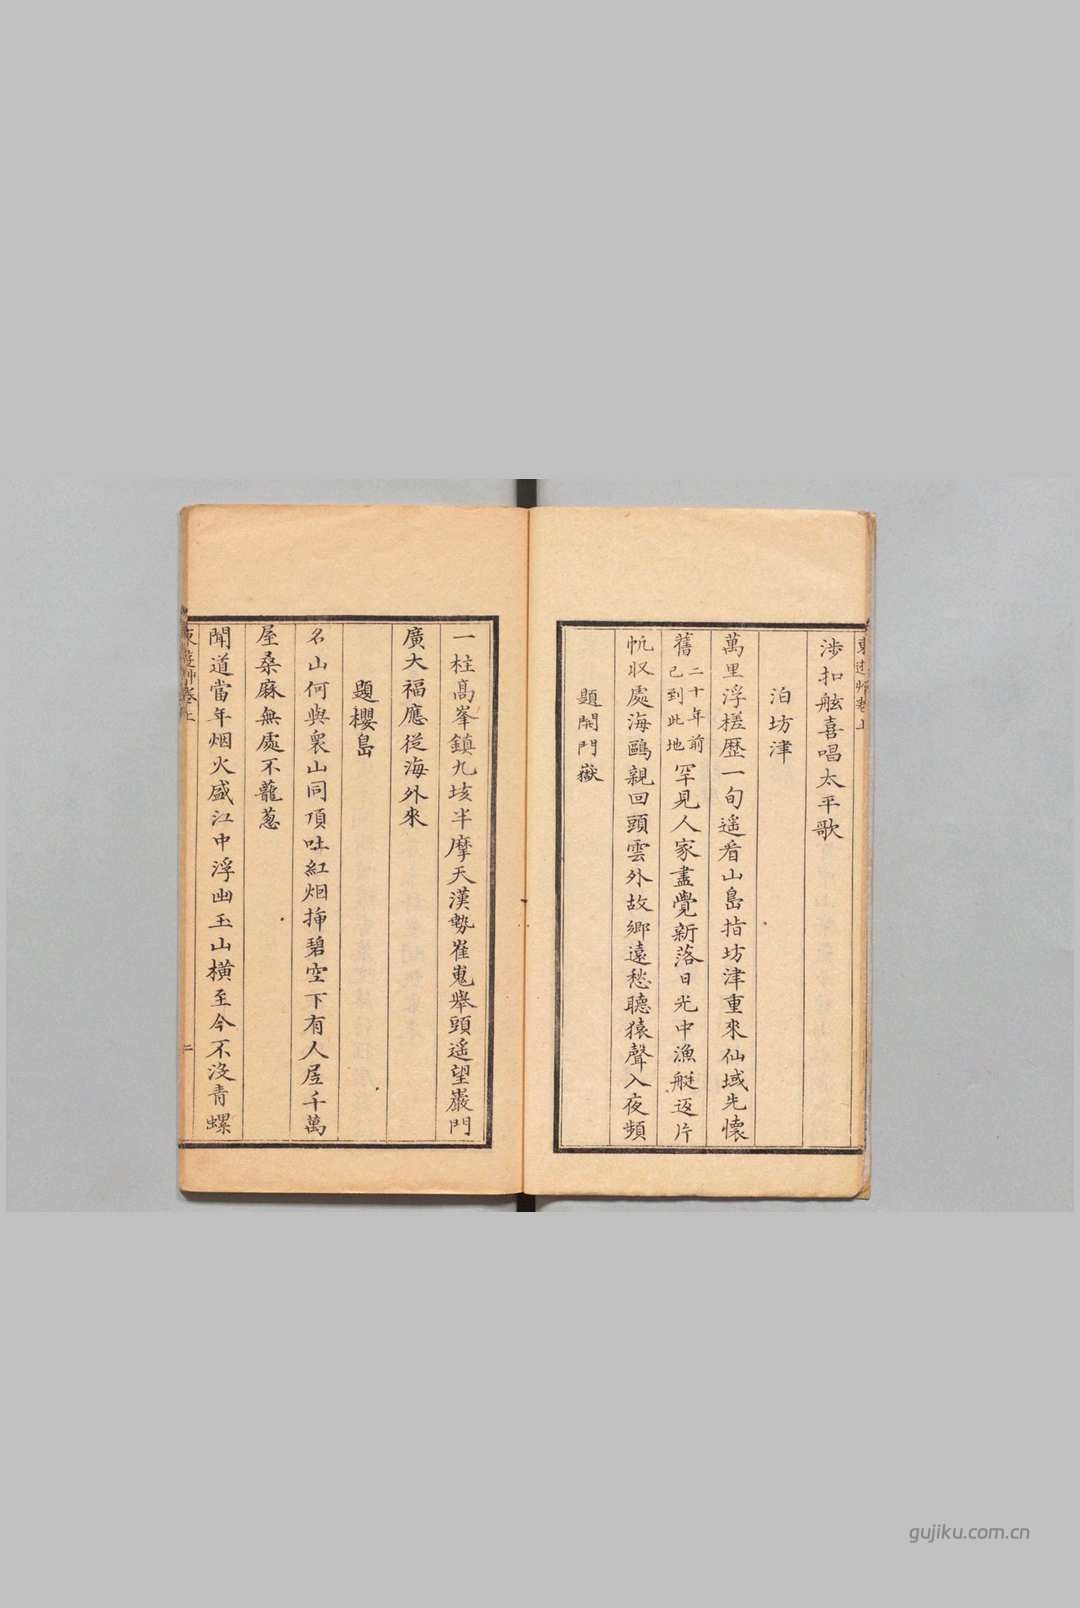 東遊艸卷上
涉扣舷喜唱太平歌
泊坊津
萬里浮槎歷一旬遙看山島指坊津重來仙域先懷
舊二十年前已到此地罕見人家盡覺新落日光中漁艇返片
帆收處海鷗親回頭雲外故鄉遠愁聽猿聲入夜頻
題開門嶽
一柱高峯鎮九垓半摩天漢勢崔嵬舉頭遙望巖門
廣大福應從海外來
題櫻島
名山何與衆山同頂吐紅烟揷碧空下有人居千萬
屋桑麻無處不蘢葱
聞道當年烟火盛江中浮出玉山橫至今不沒青螺
東遊艸卷上
二
gujiku.com.cn